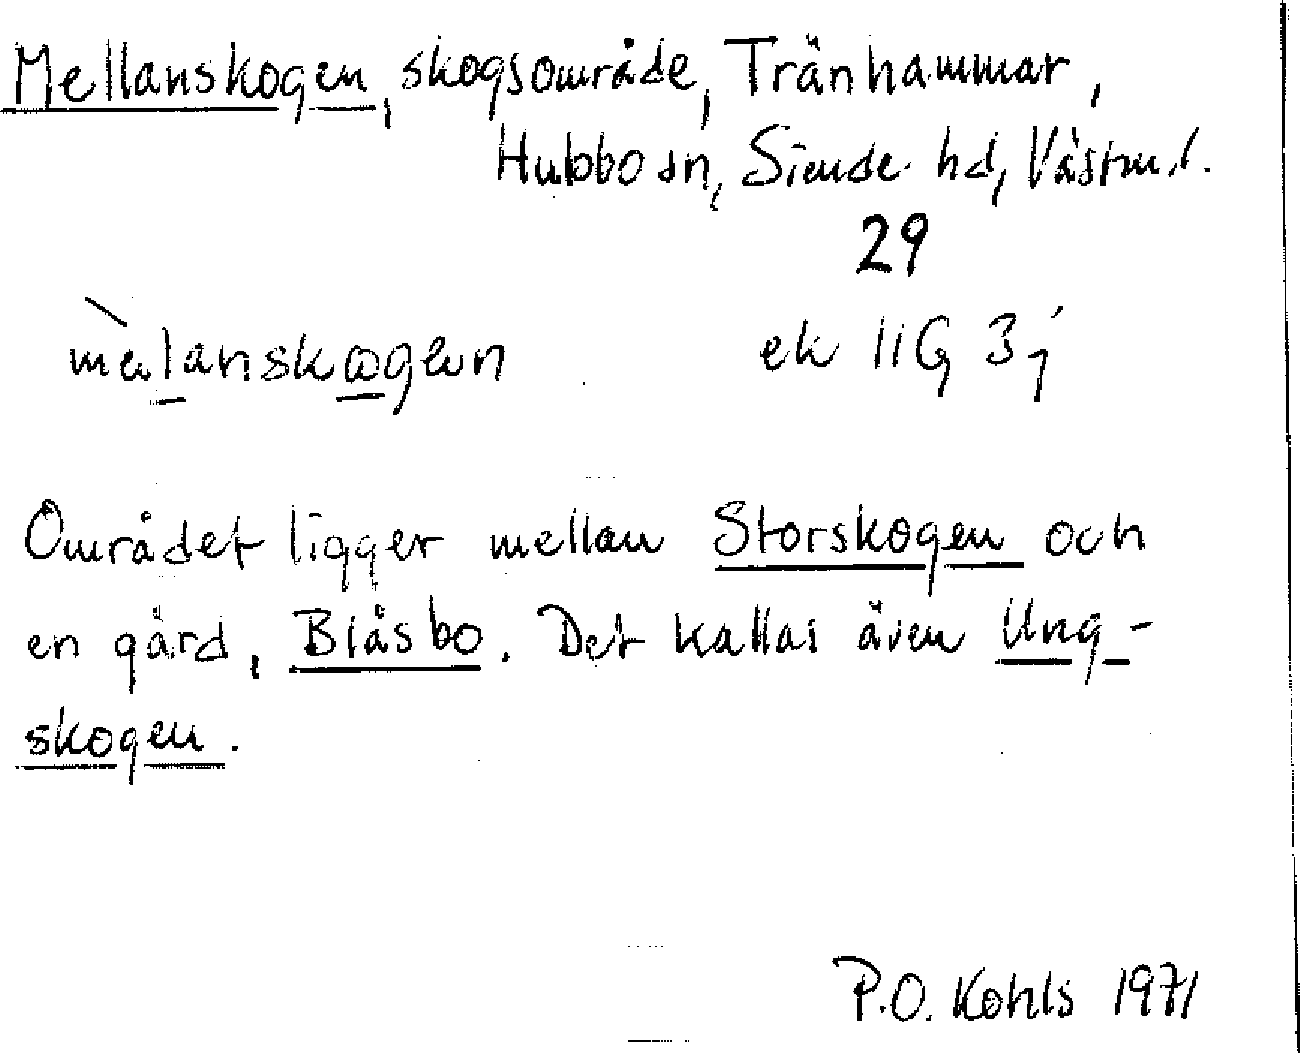 Mellanskogen, skogsområde, Tränhammar,
Hubbo sn, Siende hd, Västml.
29
mèlanskogen ek 11G 3j
Området ligger mellan Storskogen och
en gård, Blåsbo. Det kallas även Ung-
skogen.
P.O. Kohls 1971